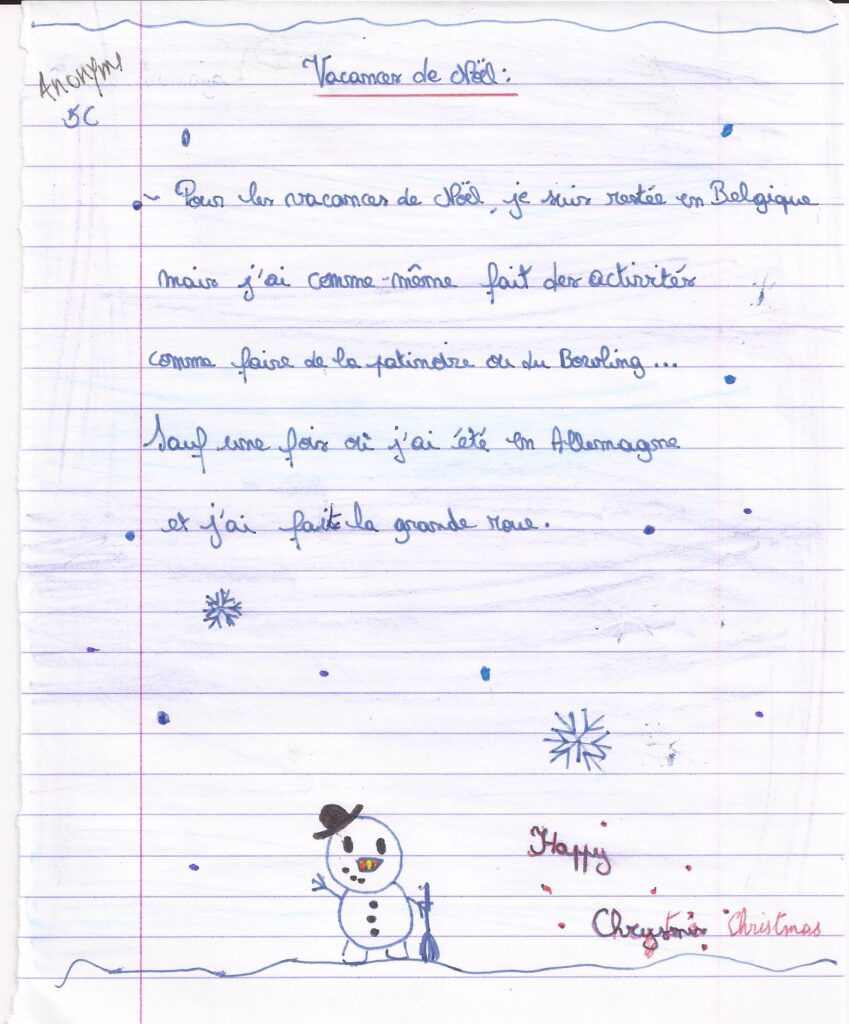 Anonyme
5C
Vacances de Noël :
- Pour les vacances de Noël, je suis restée en Belgique
mais j'ai comme-même fait des activités
comme faire de la patinoire ou du Bowling...
Sauf une fois où j'ai été en Allemagne
et j'ai fait la grande roue.
Happy
Christmas